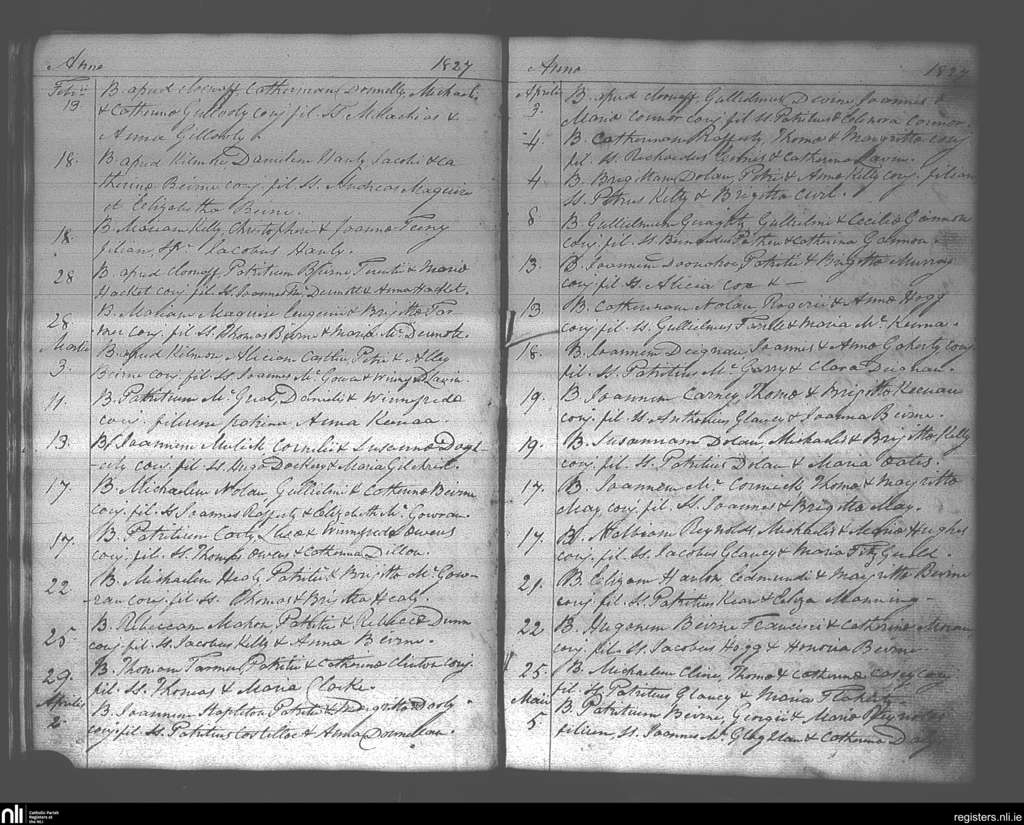 Anno 1827
Febr. 13 B. apud clonoff Catherinam Donnelly Michaeli
& Catherina Gillooly conj. fil. Ss. Malachias &
Anna Gillooly
18. B. apud Kilmore Danielem Hanly Jacobi & Ca
therina Beirne conj. fil. Ss. Andreas Maguire
et Elizabetha Beirne.
18 B. Mariam Kelly Christopheri & Joanna Feeny
filiam, Sp. Jacobus Hanly.
28 B. apud clonoff Patritium Beirne & Maria
Hacket conj. fil. Ss. Joannes Mc Dermott & Anna Hacket.
28 B. Mariam Maguire Eugenii & Brigitta Far
conj. fil. Ss. Thomas Beirne & Maria Mc Dermott.
Martii 3. B. apud Kilmore Aliciam Petri & Alley
Beirne conj. fil. Ss. Joannes Mc Gowan & Winny
11. B. Patritium Mc Danieli & Winnefrida
conj. filium patrina Anna Kenaa.
13. B. Joannem Mulick Cornelii & Susanna
conj. fil. Ss. Hugo Dockery & Maria Gilchrist.
17. B. Michaelem Nolan Gullielmi & Catherina Beirne
conj. fil. Ss. Joannes Rafferty & Elizabeth Mc Gowran.
17 B. Patritium Luca & Winnefrida Owens
conj. fil. Ss. Thomas Owens & Catherina Dillon.
22 B. Michaelem Healy Patritii & Brigitta Mc Gow-
ran conj. fil. Ss. Thomas & Brigitta Healy.
25 B. Rebeccam Mahon Patritii & Rebecca Dunn
conj. fil. Ss. Jacobus Kelly & Anna Beirne.
29. B. Thomam Patritii & Catherina Clinton conj.
fil. Ss. Thomas & Maria Clarke.
Aprilis 2 B. Joannem Stapleton Patritii & Brigitta
conj. fil. Ss. Patritius Costelloe & Anna Donnellan.
Anno 1827
Aprilis 3. B. apud clonoff Gullielmum Devine Joannis &
Maria Connor conj. fil. Ss. Patritius & Elenora Connor
4. B. Catherinam Rafferty Thoma & Margritta conj.
fil. Ss. Richardus & Catherina
4 B. Brigittam Dolan Petri & Anna Kelly conj. filiam
Ss. Petrus Kelly & Brigitta
8 B. Gullielmum Geraghty Gullielmi & Cecilia Gannon
conj. fil. Ss. Bernardus & Catherina Gannon.
13. B. Joannem Donohoe Patritii & Brigitta Murray
conj. fil. Ss. Alicia Cox & —
13. B. Catherinam Nolan Rogerii & Anna Hogg
conj. fil. Ss. Gullielmus & Maria Mc Kenna.
18. B. Joannem Deignan Joannis & Anna Gaherty conj
fil. Ss. Patritius Mc Garry & Clara Deignan.
19. B. Joannem Carney Thoma & Brigitta Keenan
conj. fil. Ss. Anthonius Glancy & Joanna Beirne.
19. B. Susannam Dolan Michaelis & Brigitta Kelly
conj. fil. Ss. Patritius Dolan & Maria Oates.
17. B. Joannem Mc Cormick Thoma & Margritta
May conj. fil. Ss. Joannes & Brigitta May.
17 B. Reynolds Michaelis & Maria Hughes
conj. fil. Ss. Jacobus Glancy & Maria
21. B. Elizam Hanlon Edmundi & Margritta Beirne
conj. fil. Ss. Patritius Kean & Eliza Manning —
22 B. Hugonem Beirne Francisci & Catherina
conj. fil. Ss. Jacobus Hogg & Honoria Beirne.
25. B. Michaelem Cline, Thoma & Catherina Casey conj
fil. Ss. Patritius Glancy & Maria
Maii 5 B. Patritium Beirne, Georgii & Maria Reynolds
filium, Ss. Joannes & Catherina Daly
nli Catholic Parish
Registers at
the NLI
registers.nli.ie